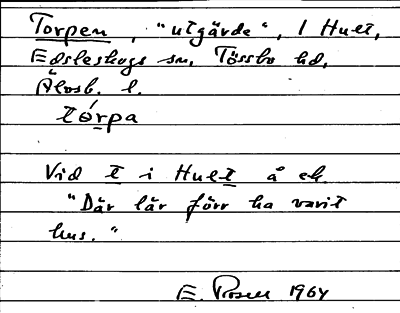 Torpen, "utgärde", 1 Hult,
Edsleskogs sn, Tössbo hd,
Älvsb. l.
tórpa
Vid t i Hult å ek.
"Där lär förr ha varit
hus."
E. Rosell 1964